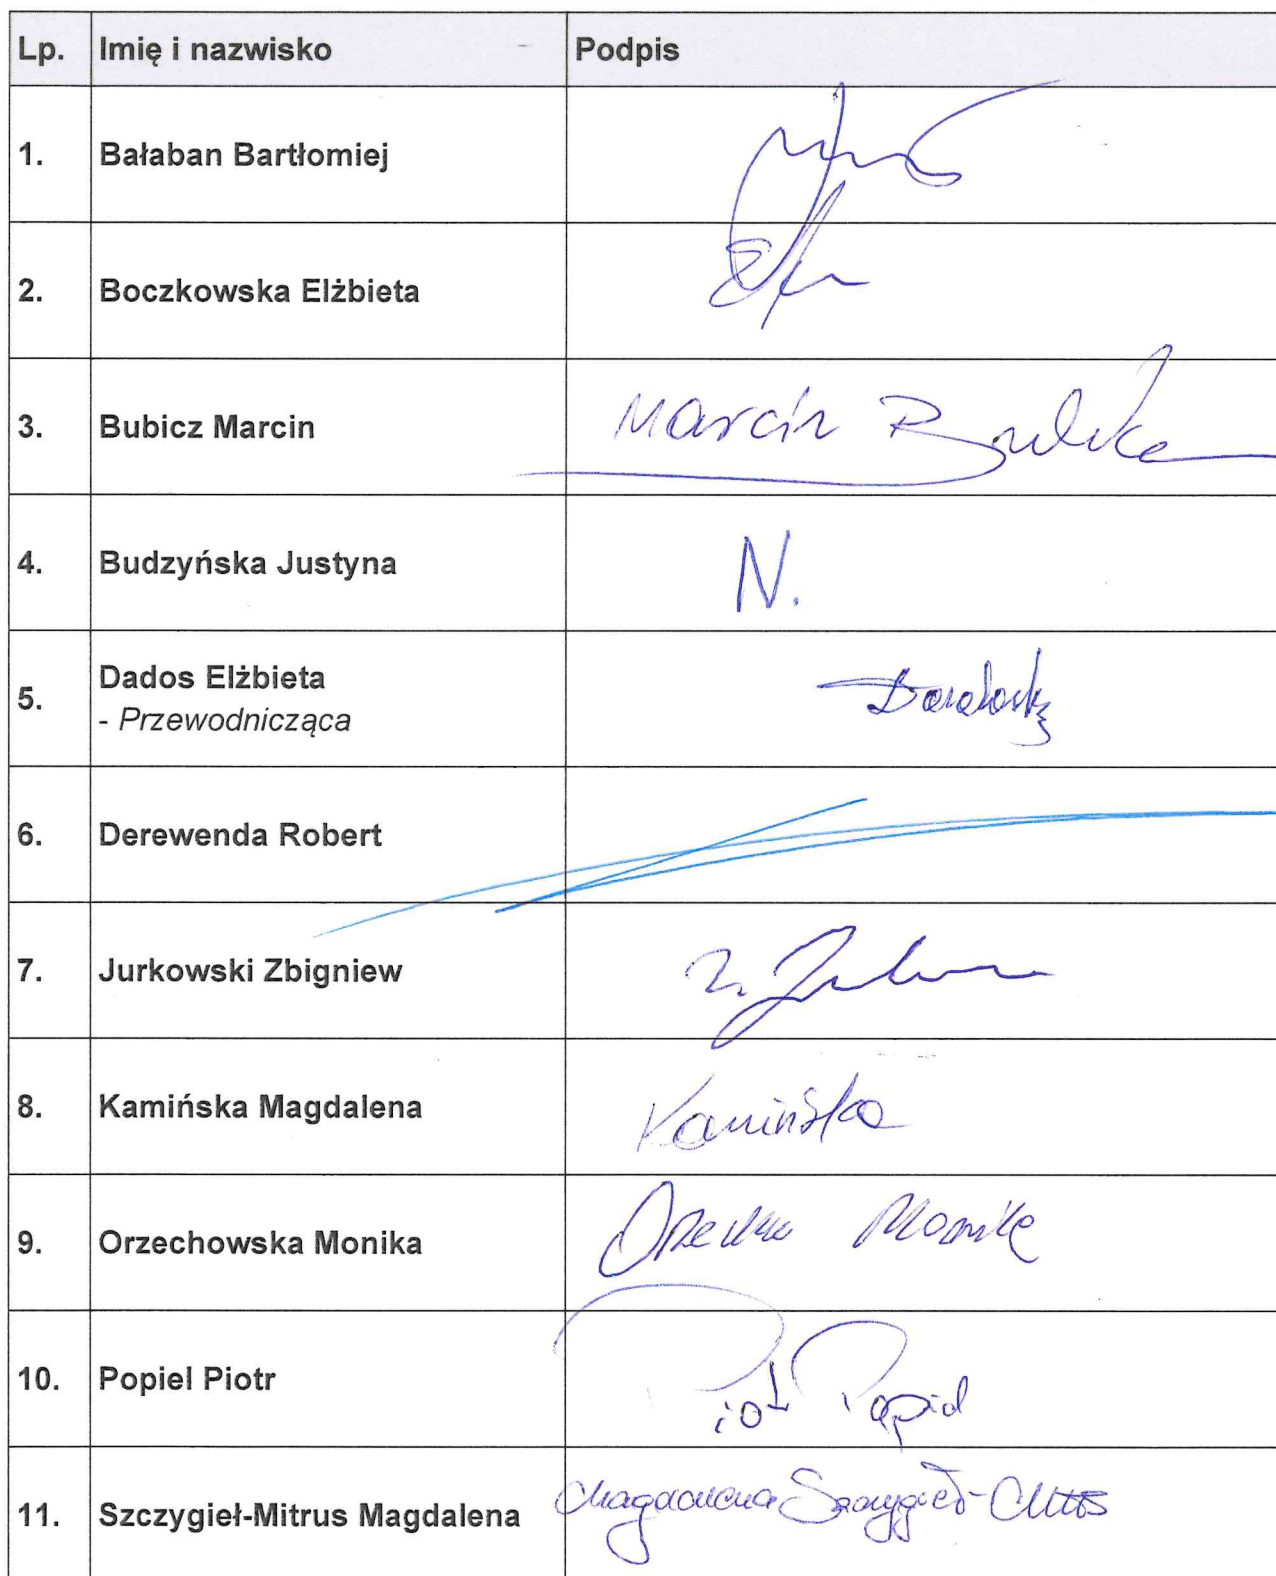 Lp. Imię i nazwisko Podpis
1. Bałaban Bartłomiej
2. Boczkowska Elżbieta
3. Bubicz Marcin Marcin
4. Budzyńska Justyna N.
5. Dados Elżbieta
- Przewodnicząca
6. Derewenda Robert
7. Jurkowski Zbigniew
8. Kamińska Magdalena Kamińska
9. Orzechowska Monika Monika
10. Popiel Piotr Piotr Popiel
11. Szczygieł-Mitrus Magdalena Magdalena Szczygieł-Mitrus